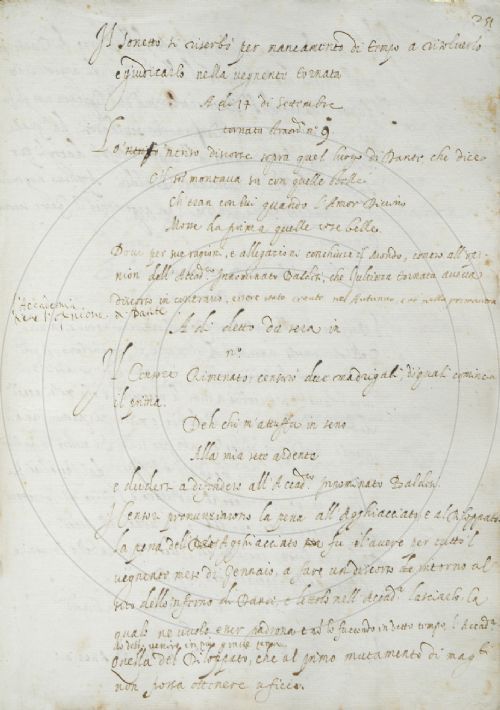 251
Il sonetto si riserbò per mancamento di tempo a risolverlo
e giudicarlo nella vegnente tornata
A dì 17 di Settembre
tornato Accad. nº 9
Lo intriso discorse sopra quel luogo di Dante che dice
E'l sol montava su con quelle stelle
Ch'eran con lui quando l'Amor Divino
Mosse da prima quelle cose belle.
Dove per sue ragioni, e allegazioni conchiuse il Mondo, contro all'
nion dell' Innominato Baldin, che l'ultima tornata aveva
discorso in contrario, essere stato creato nel Autunno, e no nella primavera
l'Accademia
opinione di Dante
A dì detto da sera in
nº
Il Censore Rimenato censurò due madrigali, di quali comincia
il primo.
Deh chi m'attuffa in seno
Alla mia sete ardente
e diedersi a difendere all' innominato Baldin.
I Censori pronunziarono la pena all' Agghiacciato, e al
la pena dell' Agghiacciato fu l'avere per tutto 'l
vegnente mese di Gennaio, a fare un discorso intorno al
sito dello inferno di Dante, e lasciarlo. La
quale ne vuole esser padrona e no lo facendo in detto tempo, l'Accad.
Quella del che al primo mutamento di mag.
non possa ottenere uficio.